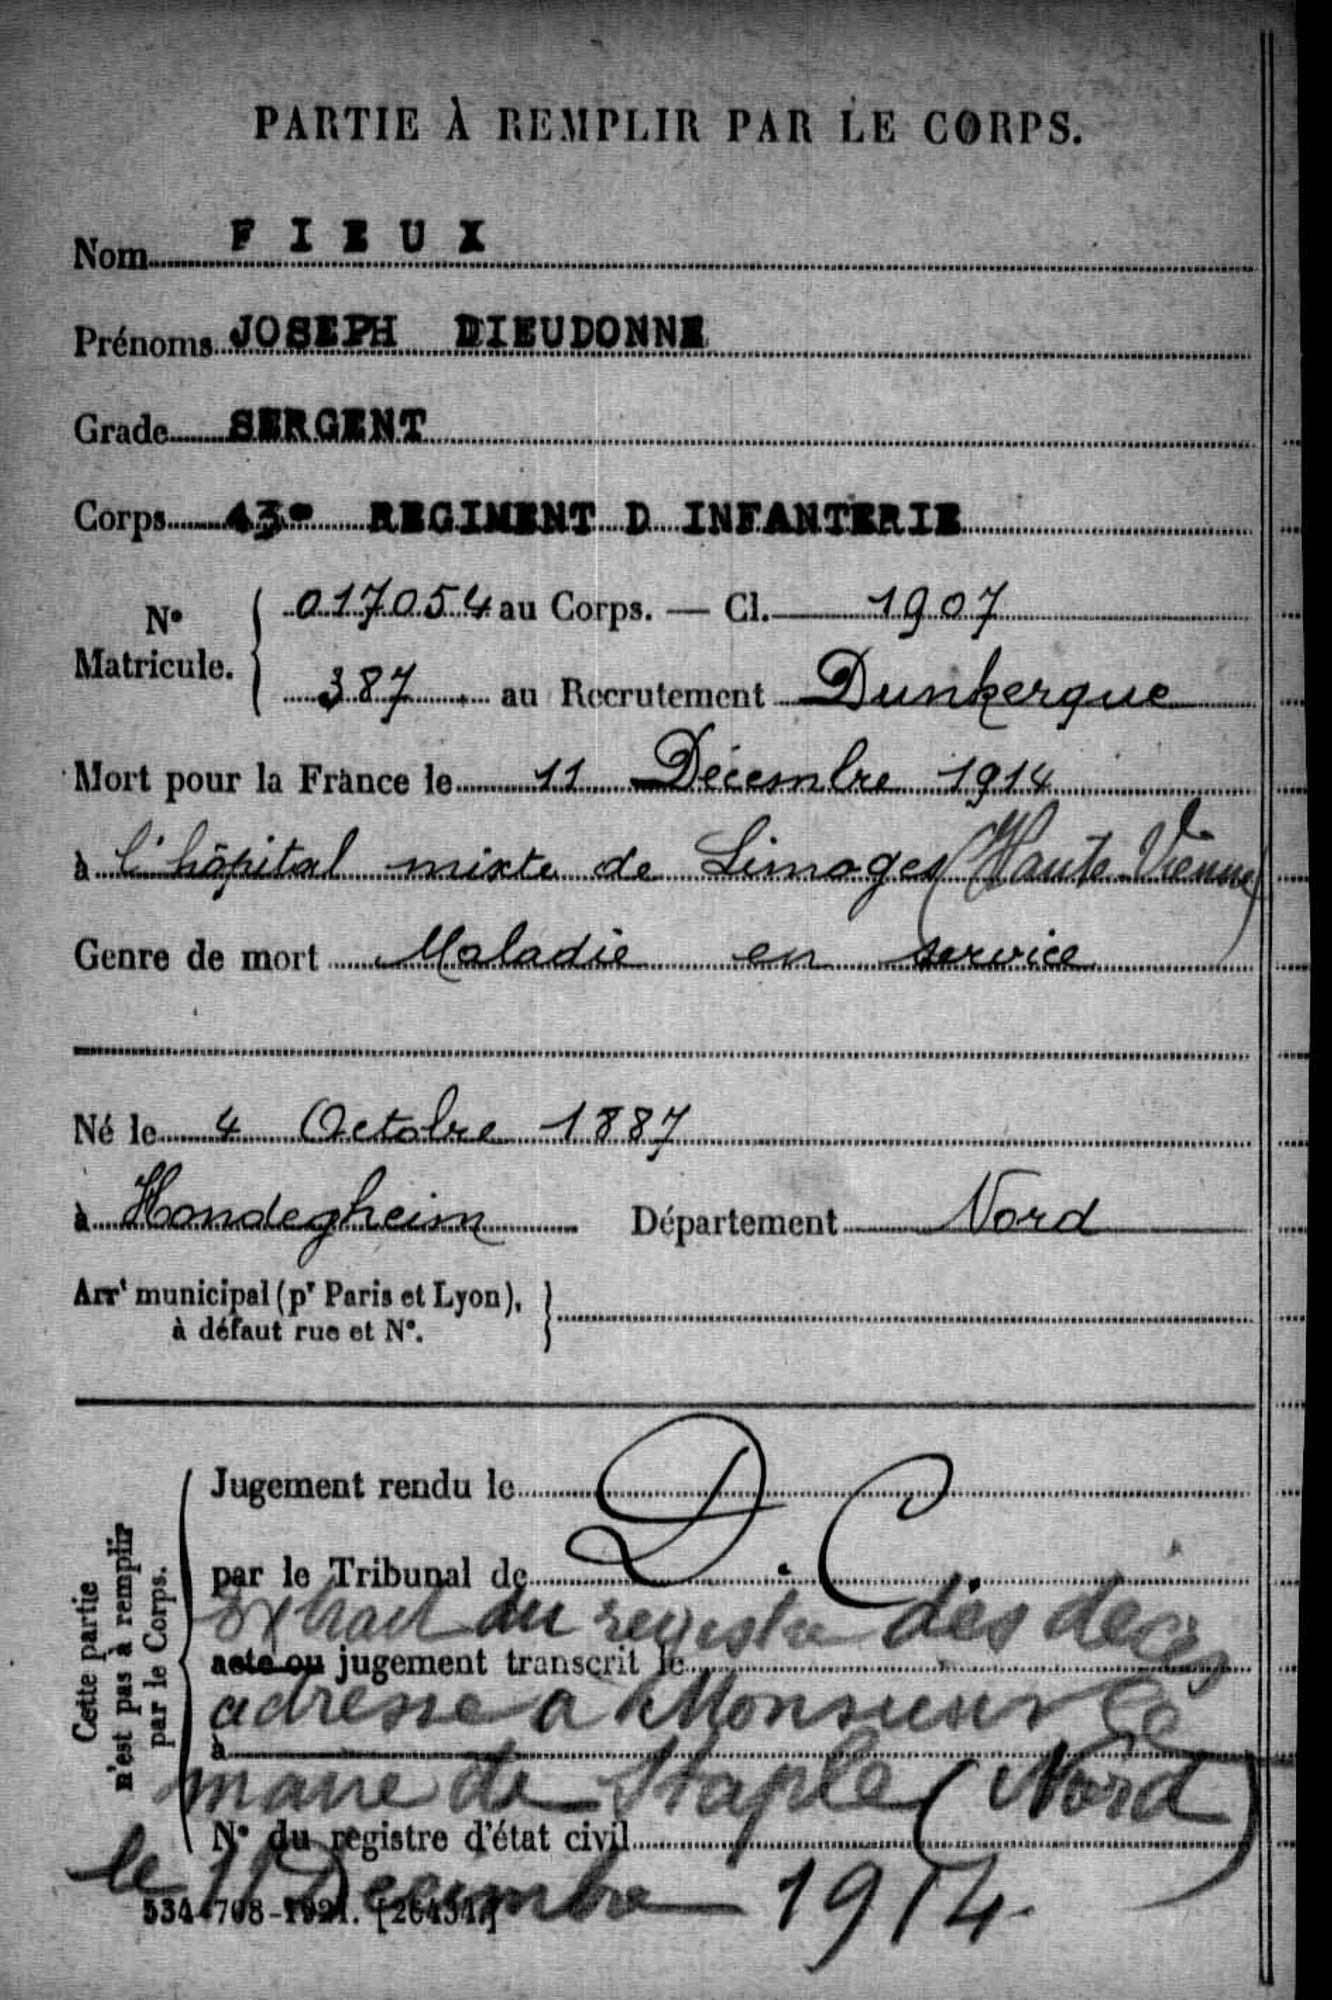 PARTIE À REMPLIR PAR LE CORPS.
Nom FIEUX
Prénoms JOSEPH DIEUDONNE
Grade SERGENT
Corps 43e REGIMENT D INFANTERIE
No Matricule. { 017054 au Corps. — Cl. 1907
387 au Recrutement Dunkerque
Mort pour la France le 11 Décembre 1914
à l'hôpital mixte de Limoges (Haute-Vienne)
Genre de mort Maladie en service
Né le 4 Octobre 1887
à Hondegheim Département Nord
Arrt municipal (pr Paris et Lyon), }
à défaut rue et N°.
Cette partie
n'est pas à remplir
par le Corps.
Jugement rendu le
D.C.
par le Tribunal de
Extrait du registre des décès
acte ou jugement transcrit le
adresse a Monsieur le
à
maire de Staple (Nord)
N° du registre d'état civil
le 11 Decembre 1914
534-708-1921. [26434]